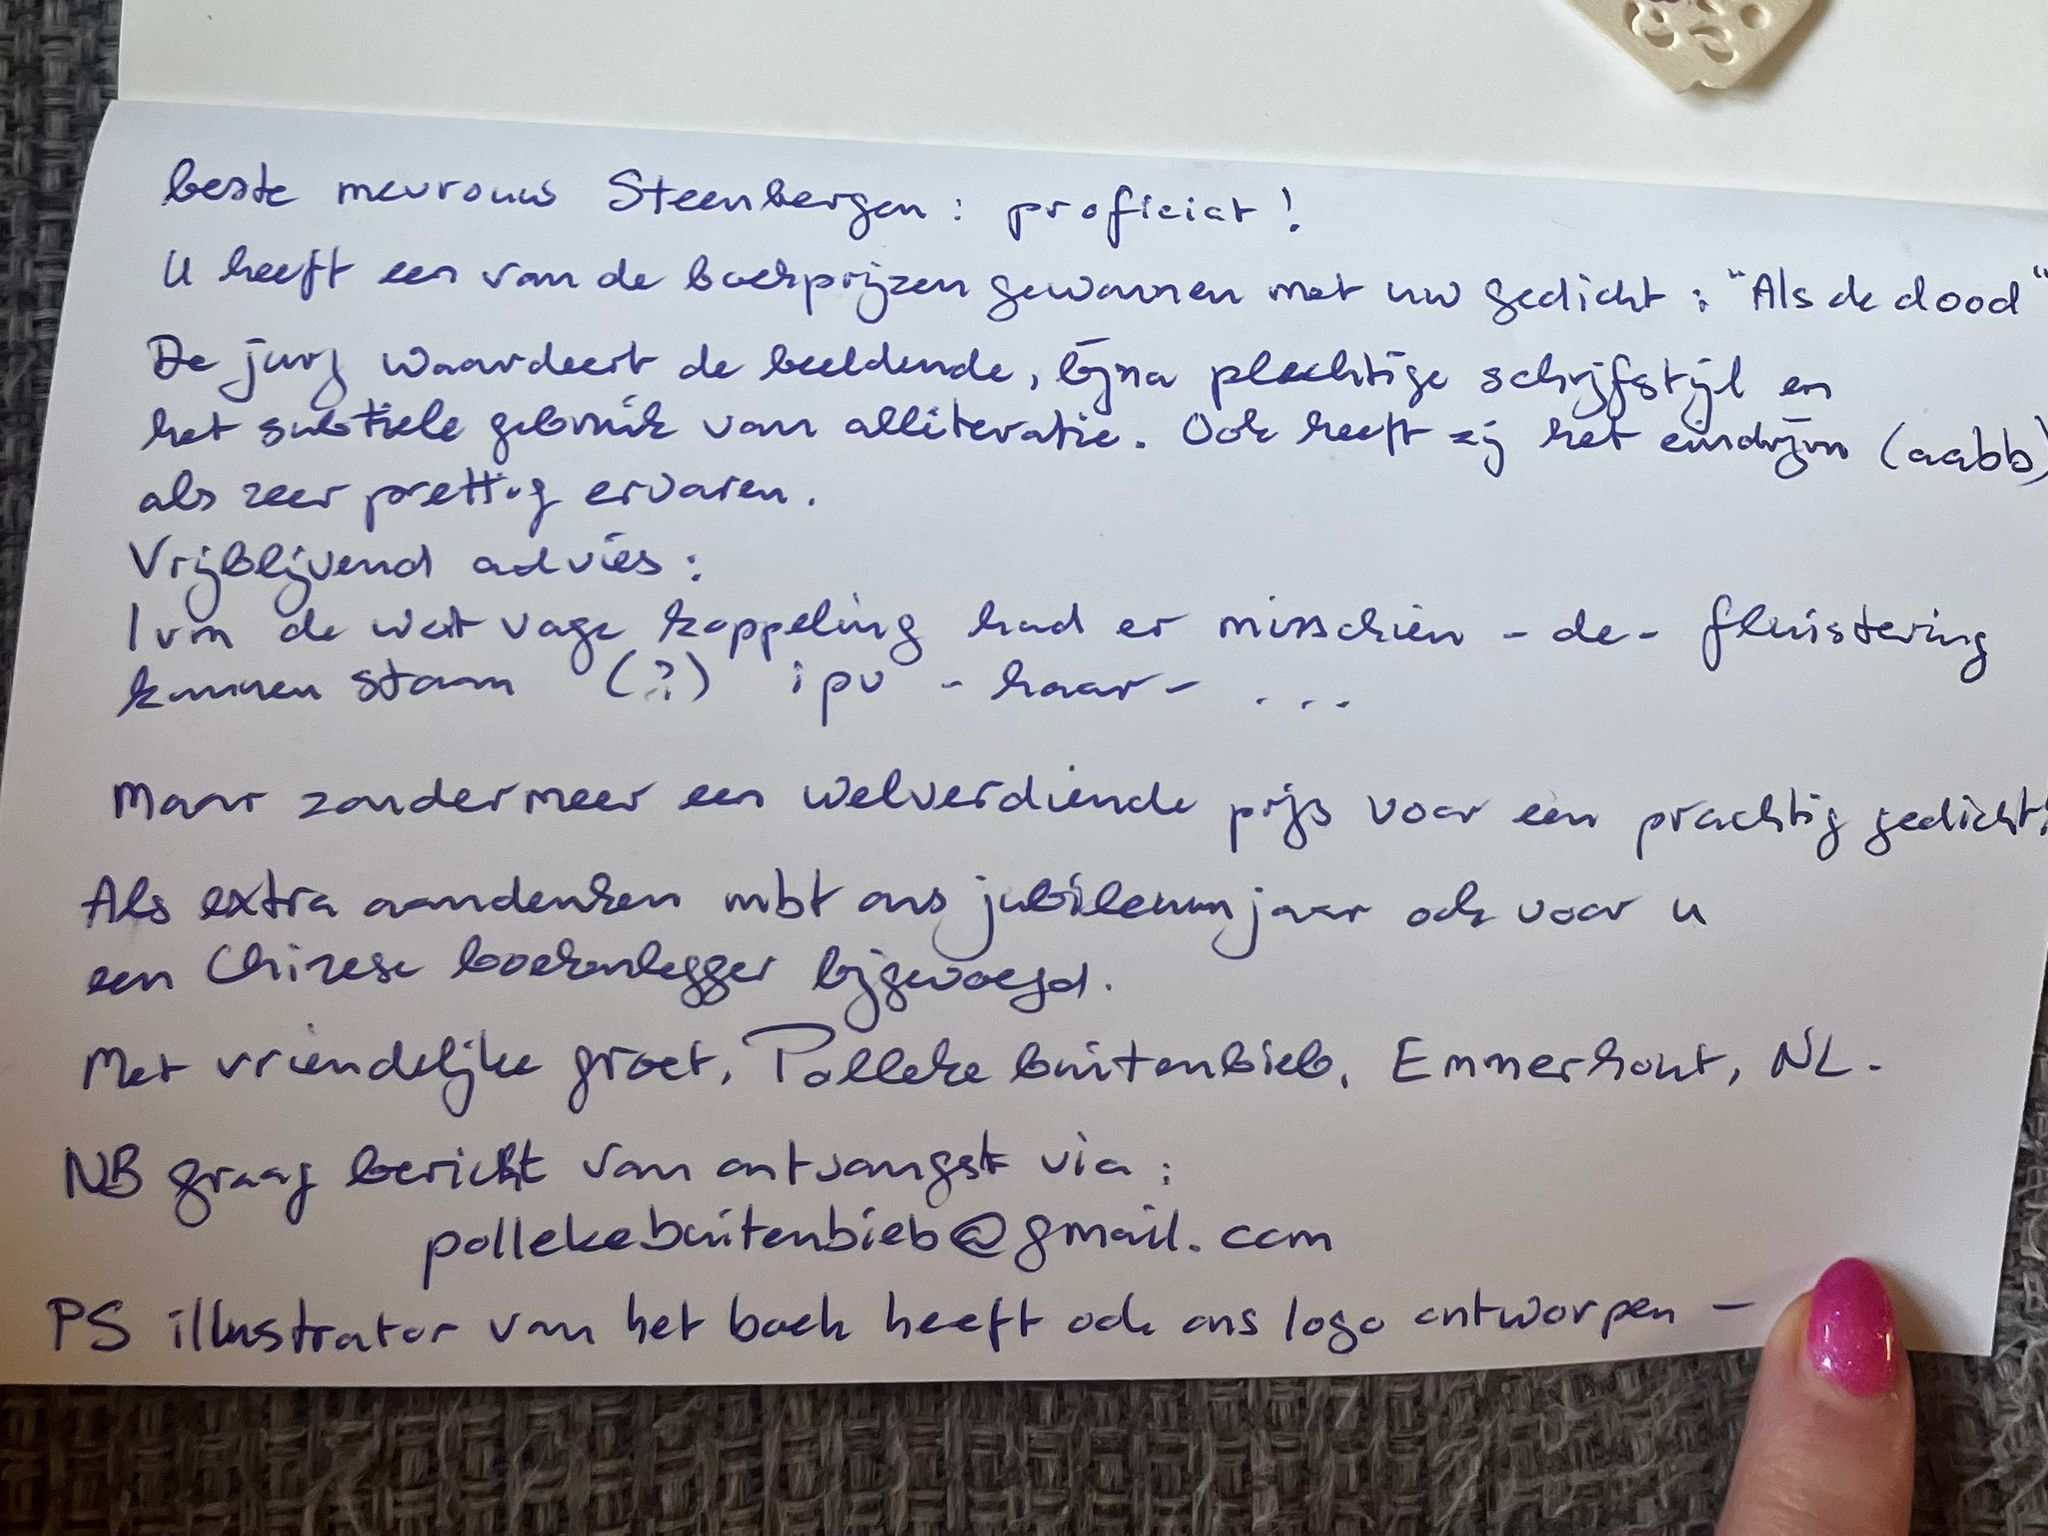 beste mevrouw Steenbergen: proficiat!
U heeft een van de boekprijzen gewonnen met uw gedicht: "Als de dood"
De jury waardeert de beeldende, bijna plechtige schrijfstijl en
het subtiele gebruik van alliteratie. Ook heeft zij het eindrijm (aabb)
als zeer prettig ervaren.
Vrijblijvend advies:
Ivm de wat vage koppeling had er misschien -de- fluistering
kunnen staan (?) ipv -haar- ...
Maar zondermeer een welverdiende prijs voor een prachtig gedicht!
Als extra aandenken mbt ons jubileumjaar ook voor u
een Chinese boekenlegger bijgevoegd.
Met vriendelijke groet, Polleke buitenbieb, Emmerhout, NL.
NB graag bericht van ontvangst via:
pollekebuitenbieb@gmail.com
PS illustrator van het boek heeft ook ons logo ontworpen -